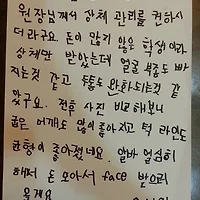 원장님께서 상체 관리를 권하시
더라구요 돈이 많지 않은 학생이라
상체만 받았는데 얼굴 부종도 빠
지는것 같고 두통도 완화되는것 같
았구요. 전후 사진 비교해보니
굽은 어깨도 많이 좋아지고 턱 라인도
균형이 좋아졌네요. 알바 열심히
해서 돈 모아서 face 받으러
올게요